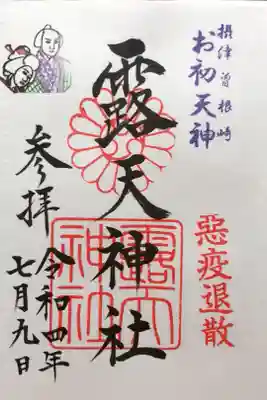 摂津 曽根崎
お初天神
悪疫退散
露天神社
露天
神社
参拝
令和四年
七月九日